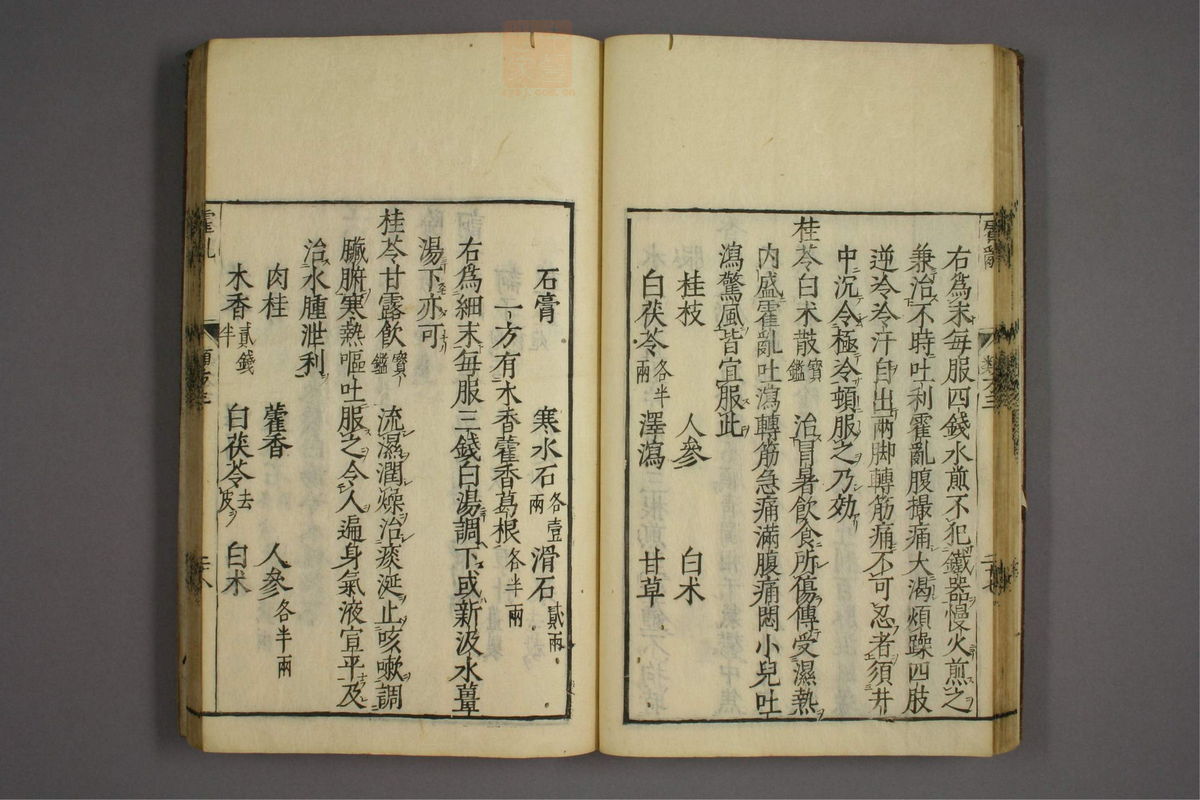 右爲末每服四錢水煎不犯鐵器慢火煎之
兼治不時吐利霍亂腹撮痛大渴煩躁四肢
逆冷冷汗自出兩脚轉筋痛不可忍者須井
中沉令極冷頓服之乃効
桂苓白术散寳鑑 治冒暑飲食所傷傳受濕熱
內盛霍亂吐瀉轉筋急痛滿腹痛悶小兒吐
瀉驚風皆宜服此
桂枝 人參 白术
白茯苓各半兩 澤瀉 甘草
石膏 寒水石各壹兩 滑石貳兩
一方有木香藿香葛根各半兩
右爲細末每服三錢白湯調下或新汲水薑
湯下亦可
桂苓甘露飲寳鑑 流濕潤燥治痰涎止咳嗽調
臟腑寒熱嘔吐服之令人遍身氣液宣平及
治水腫泄利
肉桂 藿香 人參各半兩
木香貳錢半 白茯苓去皮 白术
霍亂
二十七
霍乱
二十八